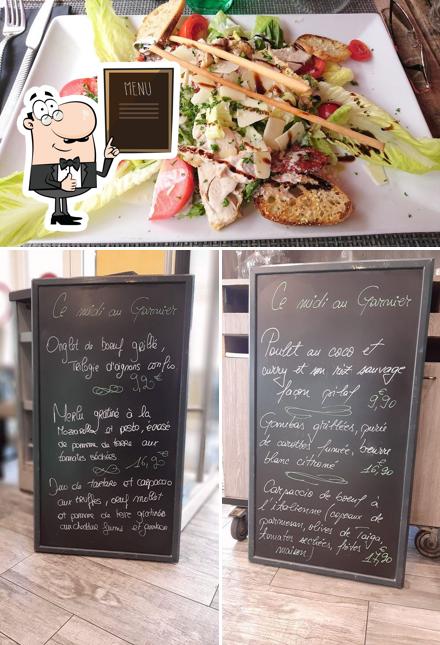 MENU
Ce midi au Garnier
Onglet de bœuf grillé,
Trilogie d'oignons confits
9,90€
Merlu gratiné à la
Mozzarella et pesto, écrasé
de pomme de terre aux
tomates séchées
16,90€
Duo de tartare et carpaccio
aux truffes, œuf mollet
et pomme de terre gratinée
au cheddar fumé et jambon
Ce midi au Garnier
Poulet au coco et
curry et son riz sauvage
façon pilaf
9,90€
Gambas grillées, purée
de carottes fumée, beurre
blanc citronné
16,90€
Carpaccio de bœuf à
l'italienne (copeaux de
parmesan, olives de Taiga,
tomates séchées, frites
maison)
17,90€